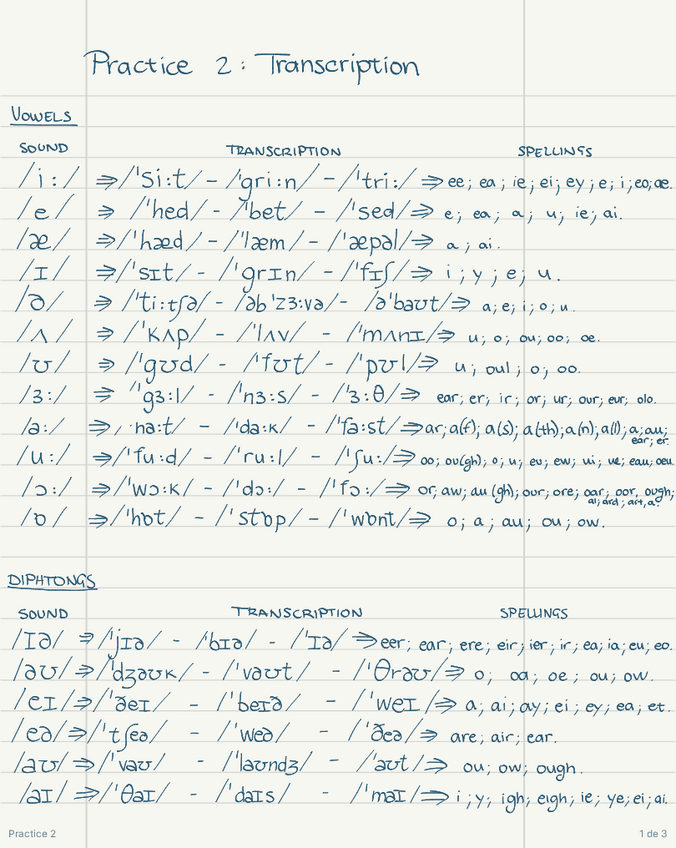 Practice 2: Transcription
VOWELS
SOUND TRANSCRIPTION SPELLINGS
/i:/ ⇒ /'si:t/ - /'gri:n/ - /'tri:/ ⇒ ee; ea; ie; ei; ey; e; i; eo; ae.
/e/ ⇒ /'hed/ - /'bet/ - /'sed/ ⇒ e; ea; a; u; ie; ai.
/æ/ ⇒ /'hæd/ - /'læm/ - /'æpəl/ ⇒ a; ai.
/ɪ/ ⇒ /'sɪt/ - /'grɪn/ - /'fɪʃ/ ⇒ i; y; e; u.
/ə/ ⇒ /'ti:tʃə/ - /əb'zɜ:və/ - /ə'baʊt/ ⇒ a; e; i; o; u.
/ʌ/ ⇒ /'kʌp/ - /'lʌv/ - /'mʌnɪ/ ⇒ u; o; ou; oo; oe.
/ʊ/ ⇒ /'gʊd/ - /'fʊt/ - /'pʊl/ ⇒ u; oul; o; oo.
/ɜ:/ ⇒ /'gɜ:l/ - /'nɜ:s/ - /'ɜ:θ/ ⇒ ear; er; ir; or; ur; our; eur; olo.
/a:/ ⇒ /'ha:t/ - /'da:k/ - /'fa:st/ ⇒ ar; a(f); a(s); a(th); a(n); a(l); a; au;
ear; er.
/u:/ ⇒ /'fu:d/ - /'ru:l/ - /'ʃu:/ ⇒ oo; ou(gh); o; u; eu; ew; ui; ue; eau; oeu
/ɔ:/ ⇒ /'wɔ:k/ - /'dɔ:/ - /'fɔ:/ ⇒ or; aw; au(gh); our; ore; oar; oor; ough;
al; ard; art; a?
/ɒ/ ⇒ /'hɒt/ - /'stɒp/ - /'wɒnt/ ⇒ o; a; au; ou; ow.
DIPHTONGS
SOUND TRANSCRIPTION SPELLINGS
/ɪə/ ⇒ /'jɪə/ - /'bɪə/ - /'ɪə/ ⇒ eer; ear; ere; eir; ier; ir; ea; ia; eu; eo.
/əʊ/ ⇒ /'dʒəʊk/ - /'vəʊt/ - /'θrəʊ/ ⇒ o; oa; oe; ou; ow.
/eɪ/ ⇒ /'ðeɪ/ - /'beɪð/ - /'weɪ/ ⇒ a; ai; ay; ei; ey; ea; et.
/eə/ ⇒ /'tʃeə/ - /'weə/ - /'ðeə/ ⇒ are; air; ear.
/aʊ/ ⇒ /'vaʊ/ - /'laʊndʒ/ - /'aʊt/ ⇒ ou; ow; ough.
/aɪ/ ⇒ /'θaɪ/ - /'daɪs/ - /'maɪ/ ⇒ i; y; igh; eigh; ie; ye; ei; ai.
Practice 2 1 de 3